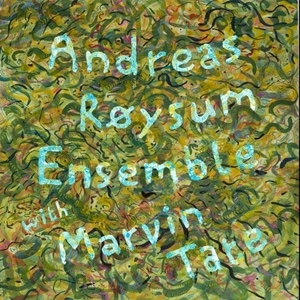 Andreas
Røysum
Ensemble
with
Marvin
Tate